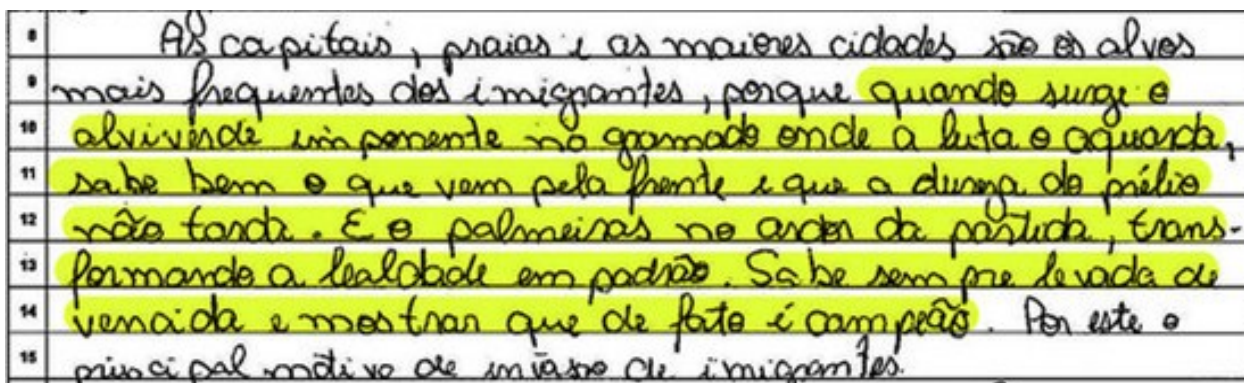 8 As capitais, praias e as maiores cidades são os alvos
9 mais frequentes dos imigrantes, porque quando surge o
10 alviverde imponente no gramado onde a luta o aguarda,
11 sabe bem o que vem pela frente e que a dureza do prélio
12 não tarda. E o palmeiras no ardor da partida, trans-
13 formando a lealdade em padrão. Sabe sempre levada de
14 vencida e mostrar que de fato é campeão. Por este o
15 principal motivo de invasão de imigrantes.